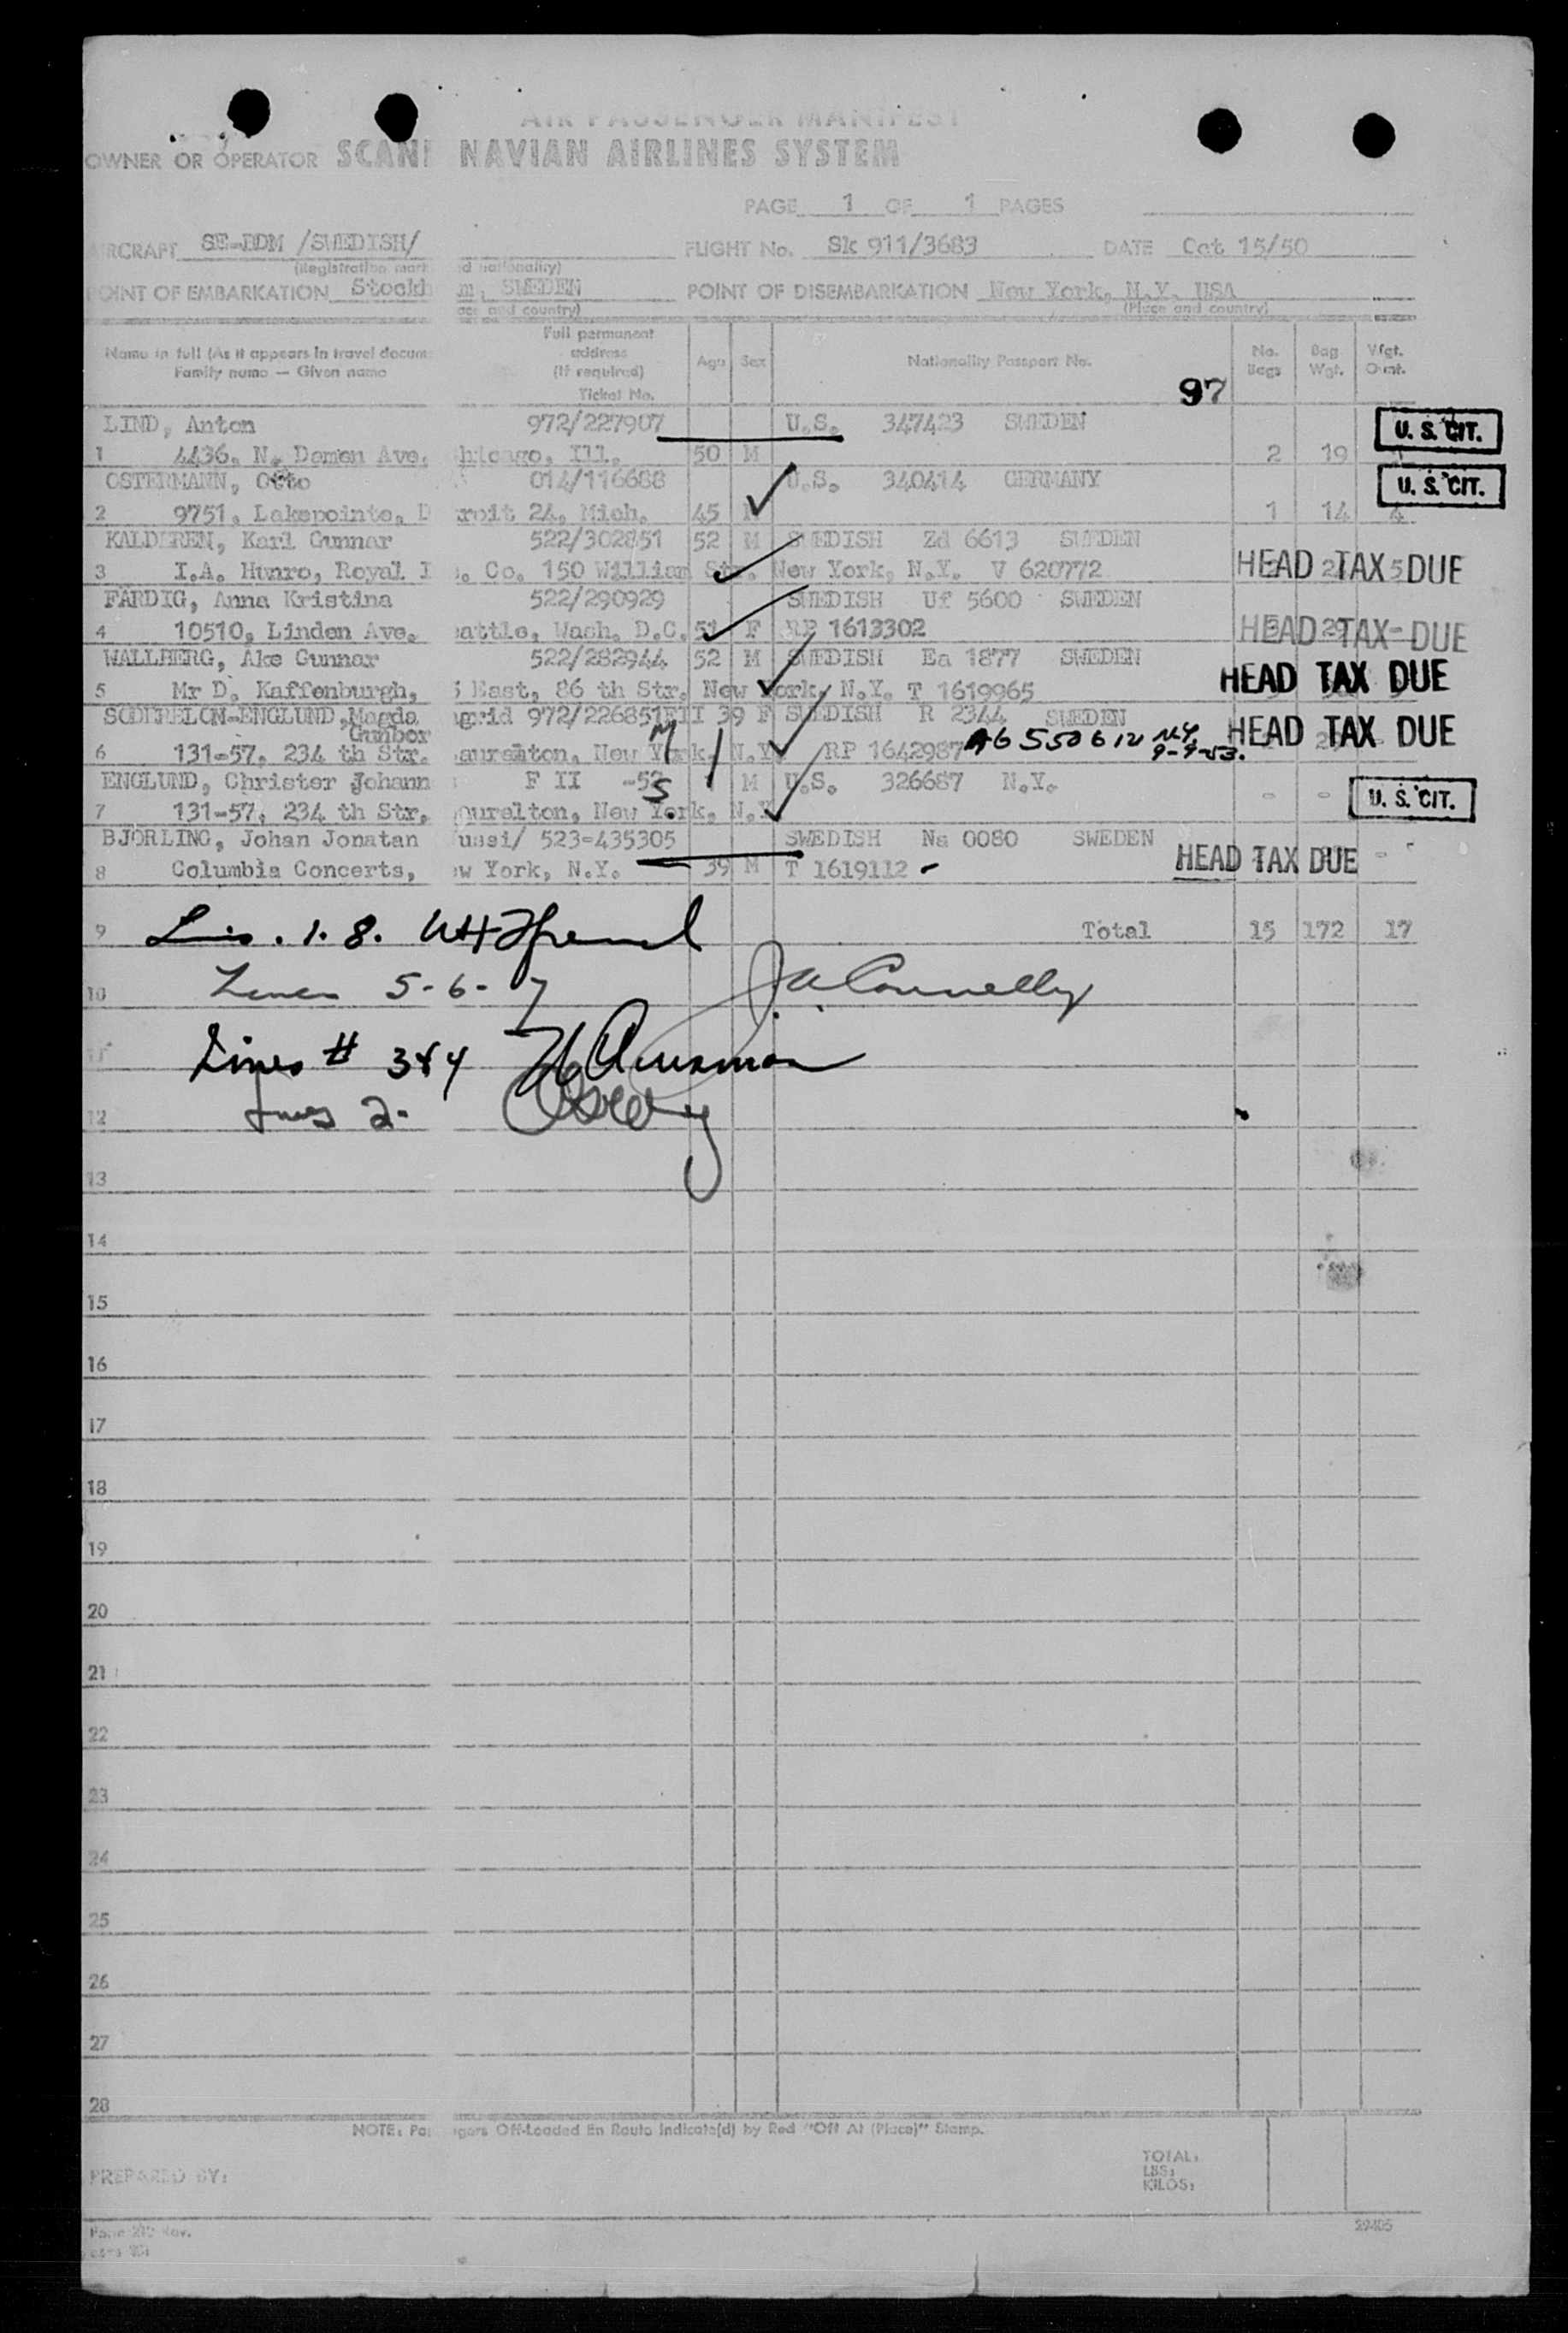 AIR PASSENGER MANIFEST
OWNER OR OPERATOR SCANI NAVIAN AIRLINES SYSTEM
PAGE 1 OF 1 PAGES
AIRCRAFT SE-BDM /SWEDISH/ FLIGHT No. Sk 911/3683 DATE Oct 15/50
(Registration mark d nationality)
POINT OF EMBARKATION Stockh m, SWEDEN POINT OF DISEMBARKATION New York, N.Y. USA
and country) (Place and country)
Name in full (As it appears in travel docum Family name — Given name
Full permanent address (If required) Ticket No.
Age Sex Nationality Passport No. No. Bags Bag Wgt.
97
LIND, Anton 972/227907 U.S. 347423 SWEDEN U.S. CIT.
1 4436, N. Damen Ave. hicago, Ill. 50 M 2 19
OSTERMANN, Otto 014/116688 U.S. 340414 GERMANY U.S. CIT.
2 9751, Lakepointe, D roit 24, Mich. 45 M 1 14 4
KALDEREN, Karl Gunnar 522/302851 52 M SWEDISH Zd 6613 SWEDEN
3 I.A. Hunro, Royal I . Co. 150 William Str. New York, N.Y. V 620772 HEAD TAX DUE
FÄRDIG, Anna Kristina 522/290929 SWEDISH Uf 5600 SWEDEN
4 10510, Linden Ave. eattle, Wash. D.C. 51 F RP 1613302 HEAD TAX DUE
WALLBERG, Åke Gunnar 522/282944 52 M SWEDISH Ea 1877 SWEDEN
5 Mr D. Kaffenburgh, 5 East, 86 th Str. New York, N.Y. T 1619965 HEAD TAX DUE
SÖDERBLOM-ENGLUND, Magda ngrid 972/226851 FII 39 F SWEDISH R 2344 SWEDEN
Gunbor
6 131-57, 234 th Str. aurelton, New York, N.Y. RP 1642987 A6 550 612 N.Y. 9-9-53. HEAD TAX DUE
M
ENGLUND, Christer Johann F II -52 M U.S. 326687 N.Y.
S
7 131-57, 234 th Str, aurelton, New York, N.Y. - - U.S. CIT.
BJÖRLING, Johan Jonatan ussi/ 523-435305 SWEDISH Na 0080 SWEDEN
8 Columbia Concerts, w York, N.Y. 39 M T 1619112 HEAD TAX DUE
9 1. 8. Total 15 172 17
10 5-6-7 J.A. Connelly
11 Lines # 3&4
12 Lines 2-
13
14
15
16
17
18
19
20
21
22
23
24
25
26
27
28
NOTE: Pa gers Off-Loaded En Route Indicate(d) by Red "Off At (Place)" Stamp.
PREPARED BY: TOTAL:
LBS:
KILOS:
29405